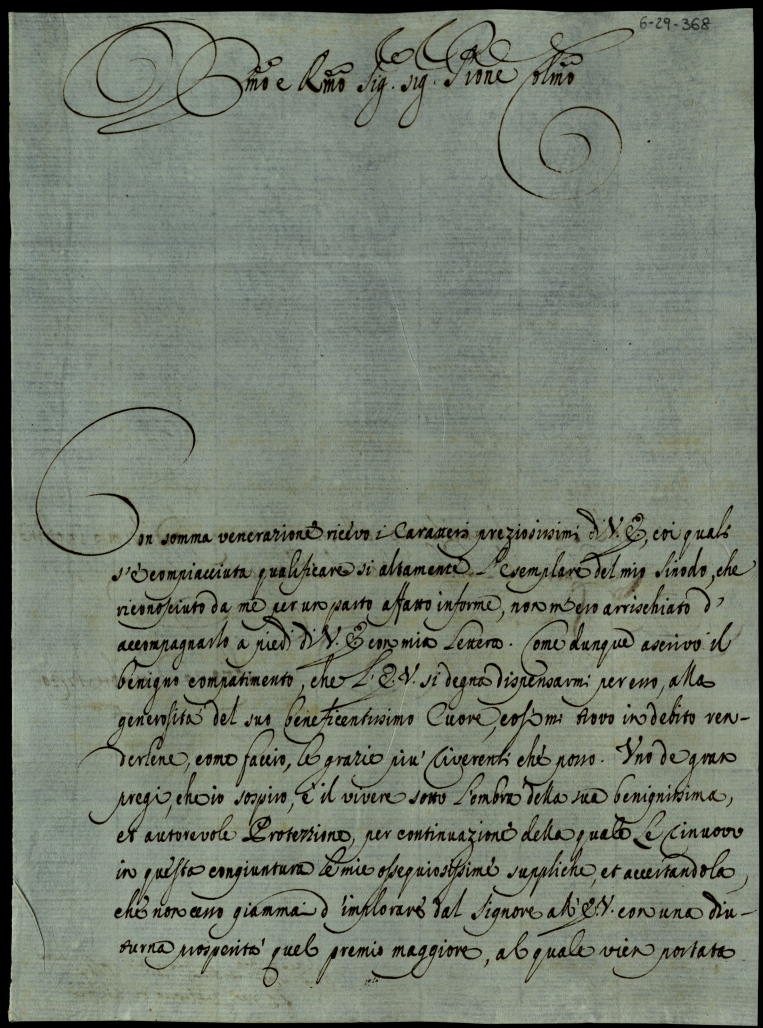 6-29-368
Emo e Rmo Sig. sig. Prone Colmo
Con somma venerazione ricevo i Caratteri preziosissimi di V. E., coi quali
s'è compiacciuta qualificare si altamente l'esemplare del mio Sinodo, che
riconosciuto da me per un parto affatto informe, non m'ero arrischiato d'
accompagnarlo a piedi di V. E. con mia Lettera. Come dunque ascrivo il
benigno compatimento, che L'E.V. si degna dispensarmi per esso, alla
generosità del suo beneficentissimo Cuore, così mi trovo in debito ren-
derlene, come faccio, le grazie più riverenti che posso. Uno de gran
pregi, che io sospiro, è il vivere sotto l'ombra della sua benignissima,
et autorevole Protezzione, per continuazione della quale Le rinuovo
in questa congiuntura le mie ossequiosissime suppliche, et accertandola,
che non cesso giammai d'implorare dal Signore all'E.V. con una diu-
turna prosperità quel premio maggiore, al quale vien portata